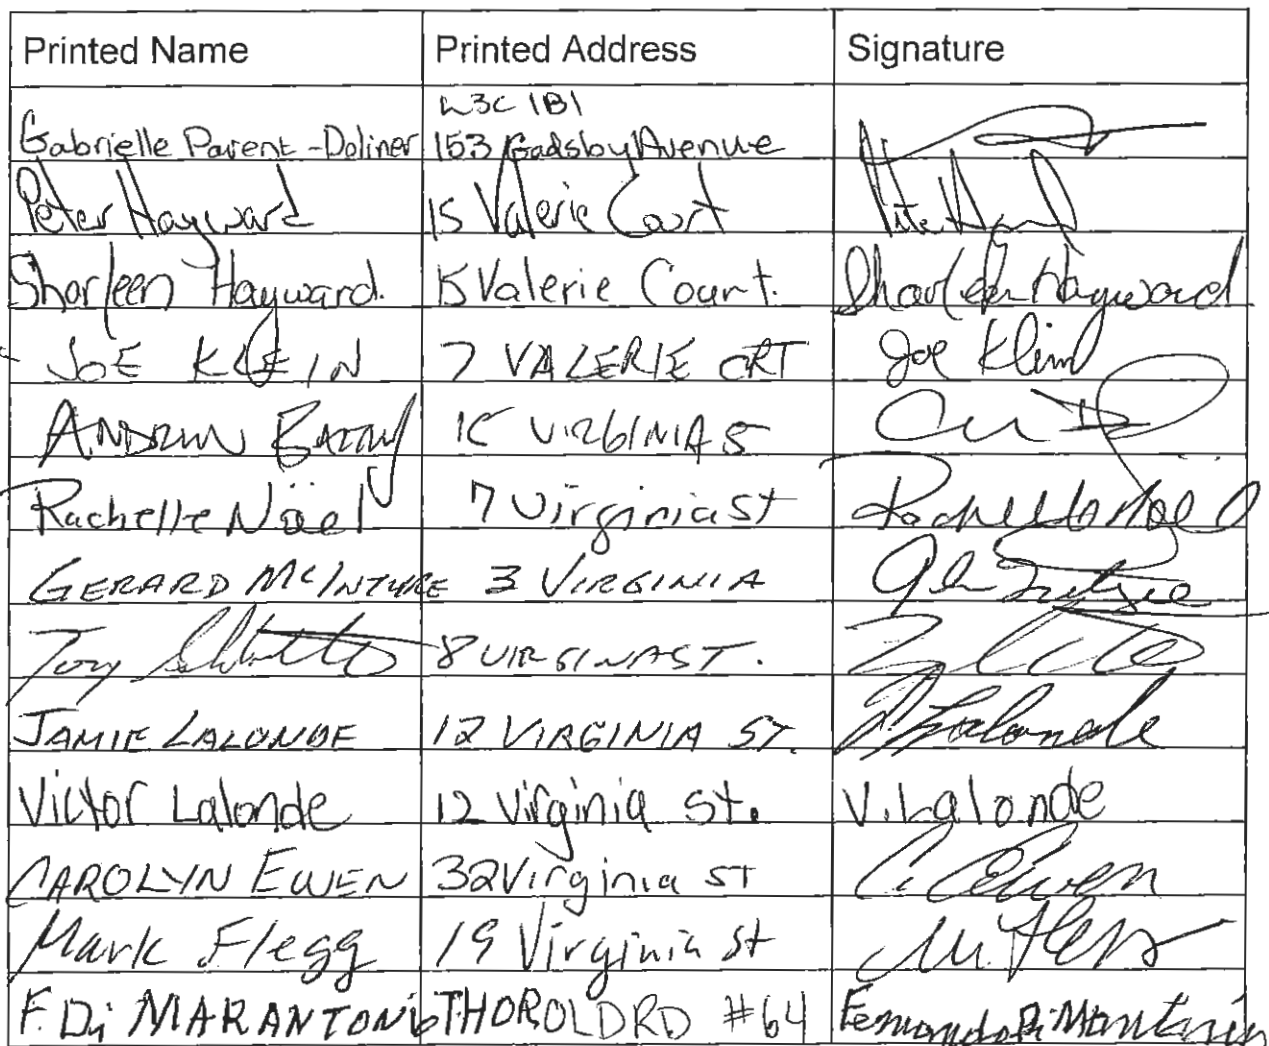 Printed Name Printed Address Signature
L3C 1B1
Gabrielle Parent-Doliner 153 Gadsby Avenue
Peter Hayward 15 Valerie Court
Sharleen Hayward. 15 Valerie Court. Sharleen Hayward
JOE KLEIN 7 VALERIE CRT Joe Klein
ANDREW 15 VIRGINIA S
Rachelle Nöel 7 Virginia St Rachelle Noel
GERARD MCINTYRE 3 VIRGINIA
Tony 8 VIRGINAST.
JAMIE LALONDE 12 VIRGINIA ST. Lalonde
Victor Lalonde 12 Virginia St. V. Lalonde
CAROLYN EWEN 32 Virginia ST C. Ewen
Mark Flegg 19 Virginia St M. Flegg
F. Di MARANTONIO THOROLD RD #64